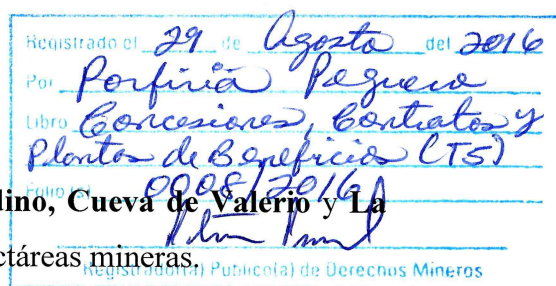 Registrado el 29 de Agosto del 2016
Por Porfiria Peguero
Libro Concesiones, Contratos y
Plantas de Beneficios (T5)
Folio(s) 0008/2016
lino, Cueva de Valerio y La
ctáreas mineras.
Registrador(a) Publico(a) de Derechos Mineros